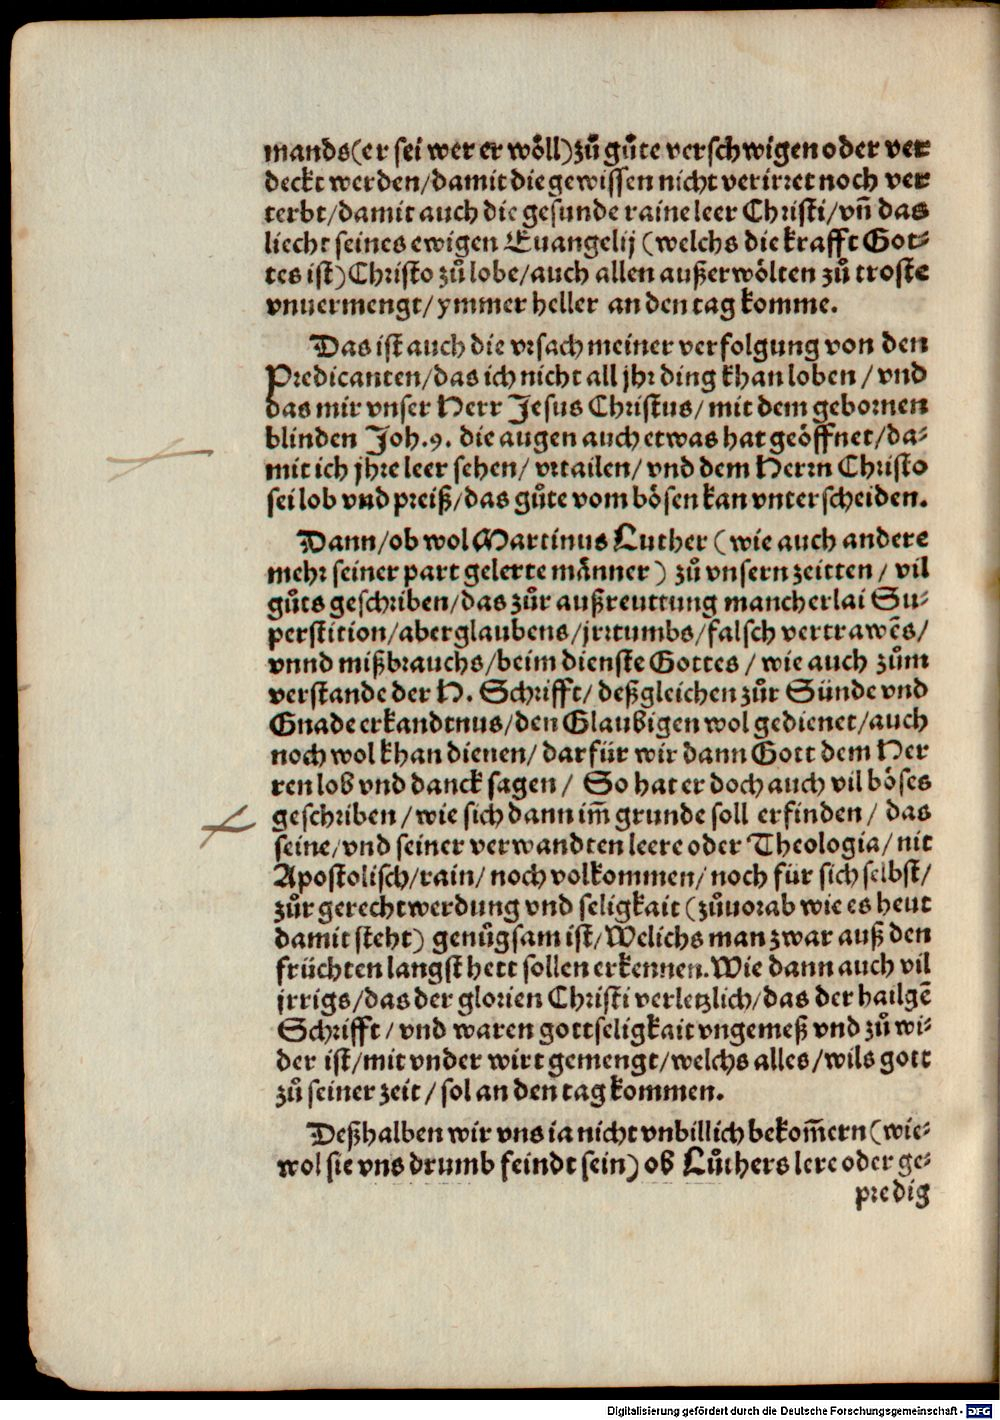 mands(er sei wer er wöll)zů gůte verschwigen oder ver
deckt werden/damit die gewissen nicht verirret noch ver
terbt/damit auch die gesunde raine leer Christi/vñ das
liecht seines ewigen Euangelij (welchs die krafft Got⸗
tes ist)Christo zů lobe/auch allen außerwölten zů troste
vnuermengt/ymmer heller an den tag komme.
Das ist auch die vrsach meiner verfolgung von den
Predicanten/das ich nicht all jhr ding khan loben/vnd
das mir vnser Herr Jesus Christus/mit dem gebornen
blinden Joh.9. die augen auch etwas hat geöffnet/da⸗
mit ich jhre leer sehen/vrtailen/vnd dem Herrn Christo
sei lob vnd preiß/das gůte vom bösen kan vnterscheiden.
Dann/ob wol Martinus Luther (wie auch andere
mehr seiner part gelerte männer) zů vnsern zeitten/vil
gůts geschriben/das zůr außreuttung mancherlai Su⸗
perstition/aberglaubens/jrrtumbs/falsch vertrawẽs/
vnnd mißbrauchs/beim dienste Gottes/wie auch zům
verstande der H. Schrifft/deßgleichen zůr Sünde vnd
Gnade erkandtnus/den Glaubigen wol gedienet/auch
noch wol khan dienen/darfür wir dann Gott dem Her
ren lob vnd danck sagen/ So hat er doch auch vil böses
geschriben/wie sich dann im̃ grunde soll erfinden/das
seine/vnd seiner verwandten leere oder Theologia/nit
Apostolisch/rain/noch volkommen/noch für sich selbst/
zůr gerechtwerdung vnd seligkait (zůuorab wie es heut
damit steht) genůgsam ist/Welichs man zwar auß den
früchten langst hett sollen erkennen.Wie dann auch vil
jrrigs/das der glorien Christi verletzlich/das der hailgẽ
Schrifft/vnd waren gottseligkait vngemeß vnd zů wi⸗
der ist/mit vnder wirt gemengt/welchs alles/wils gott
zů seiner zeit/sol an den tag kommen.
Deßhalben wir vns ia nicht vnbillich bekom̃ern (wie⸗
wol sie vns drumb feindt sein) ob Lůthers lere oder ge⸗
predig
Digitalisierung gefördert durch die Deutsche Forschungsgemeinschaft - DFG